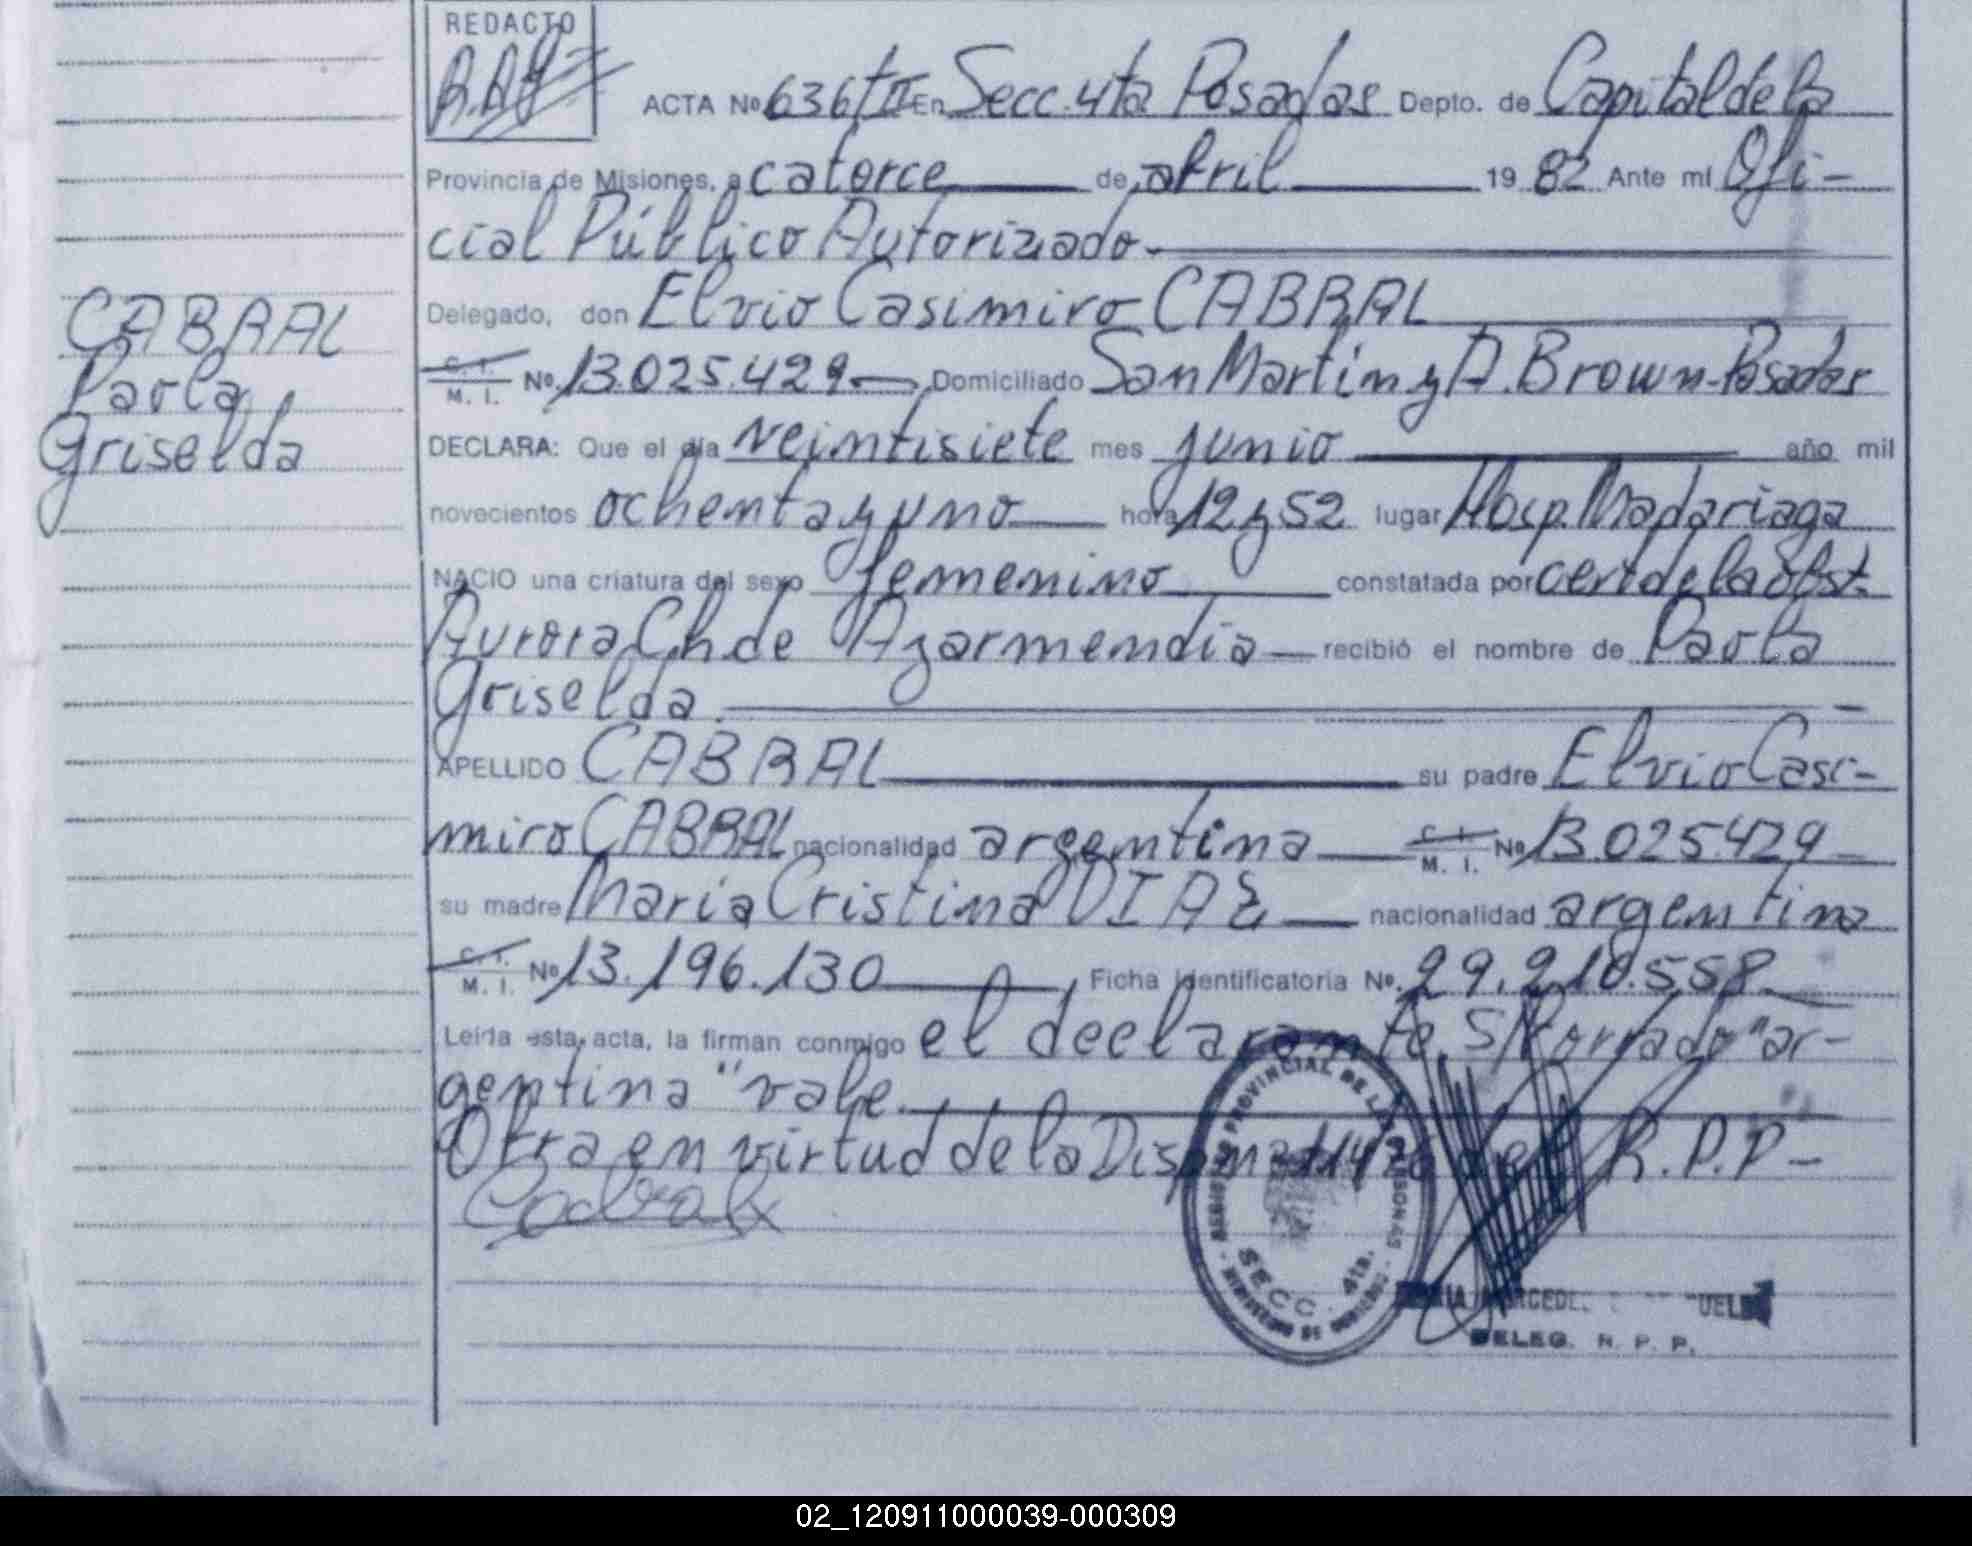 REDACTO
ACTA Nº 636/tII En Secc. 4ta Posadas Depto. de Capital de la
Provincia de Misiones, a catorce de abril 19 82 Ante mi Ofi-
cial Público Autorizado.
Delegado, don Elvio Casimiro CABRAL
C. I. M. I. Nº 13.025.429 Domiciliado San Martin y A. Brown-Posadas
DECLARA: Que el día veintisiete mes junio año mil
novecientos ochenta y uno hora 12 y 52 lugar Hosp. Madariaga
NACIO una criatura del sexo femenino constatada por cert de la obst.
Aurora Ch. de Azarmendia recibió el nombre de Paola
Griselda.
APELLIDO CABRAL su padre Elvio Casi-
miro CABRAL nacionalidad argentina C. I. M. I. Nº 13.025.429
su madre María Cristina DIAZ nacionalidad argentina
C. I. M. I. Nº 13.196.130 Ficha Identificatoria Nº. 29.210.558
Leída esta acta, la firman conmigo el declarante. S/borrado "ar-
gentina" vale.
Otra en virtud de la Disp. del R.P.P-
CABRAL
Paola
Griselda
REGISTRO PROVINCIAL DE LAS PERSONAS
SECC. 4ta.
MINISTERIO DE GOBIERNO
DELEG. R. P. P.
02_120911000039-000309